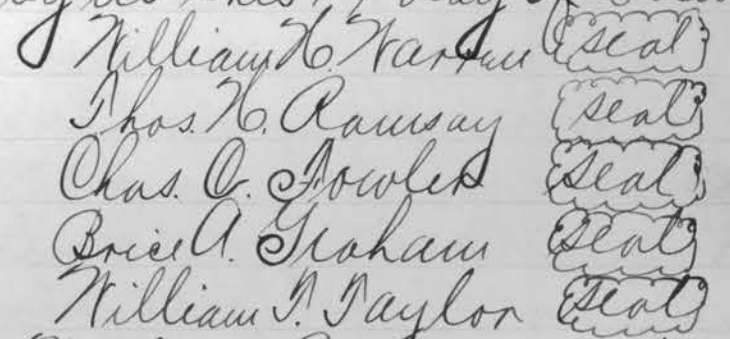 William H. Warren seal
Thos. H. Ramsay seal
Chas. O. Fowler seal
Brice A. Graham seal
William T. Taylor seal